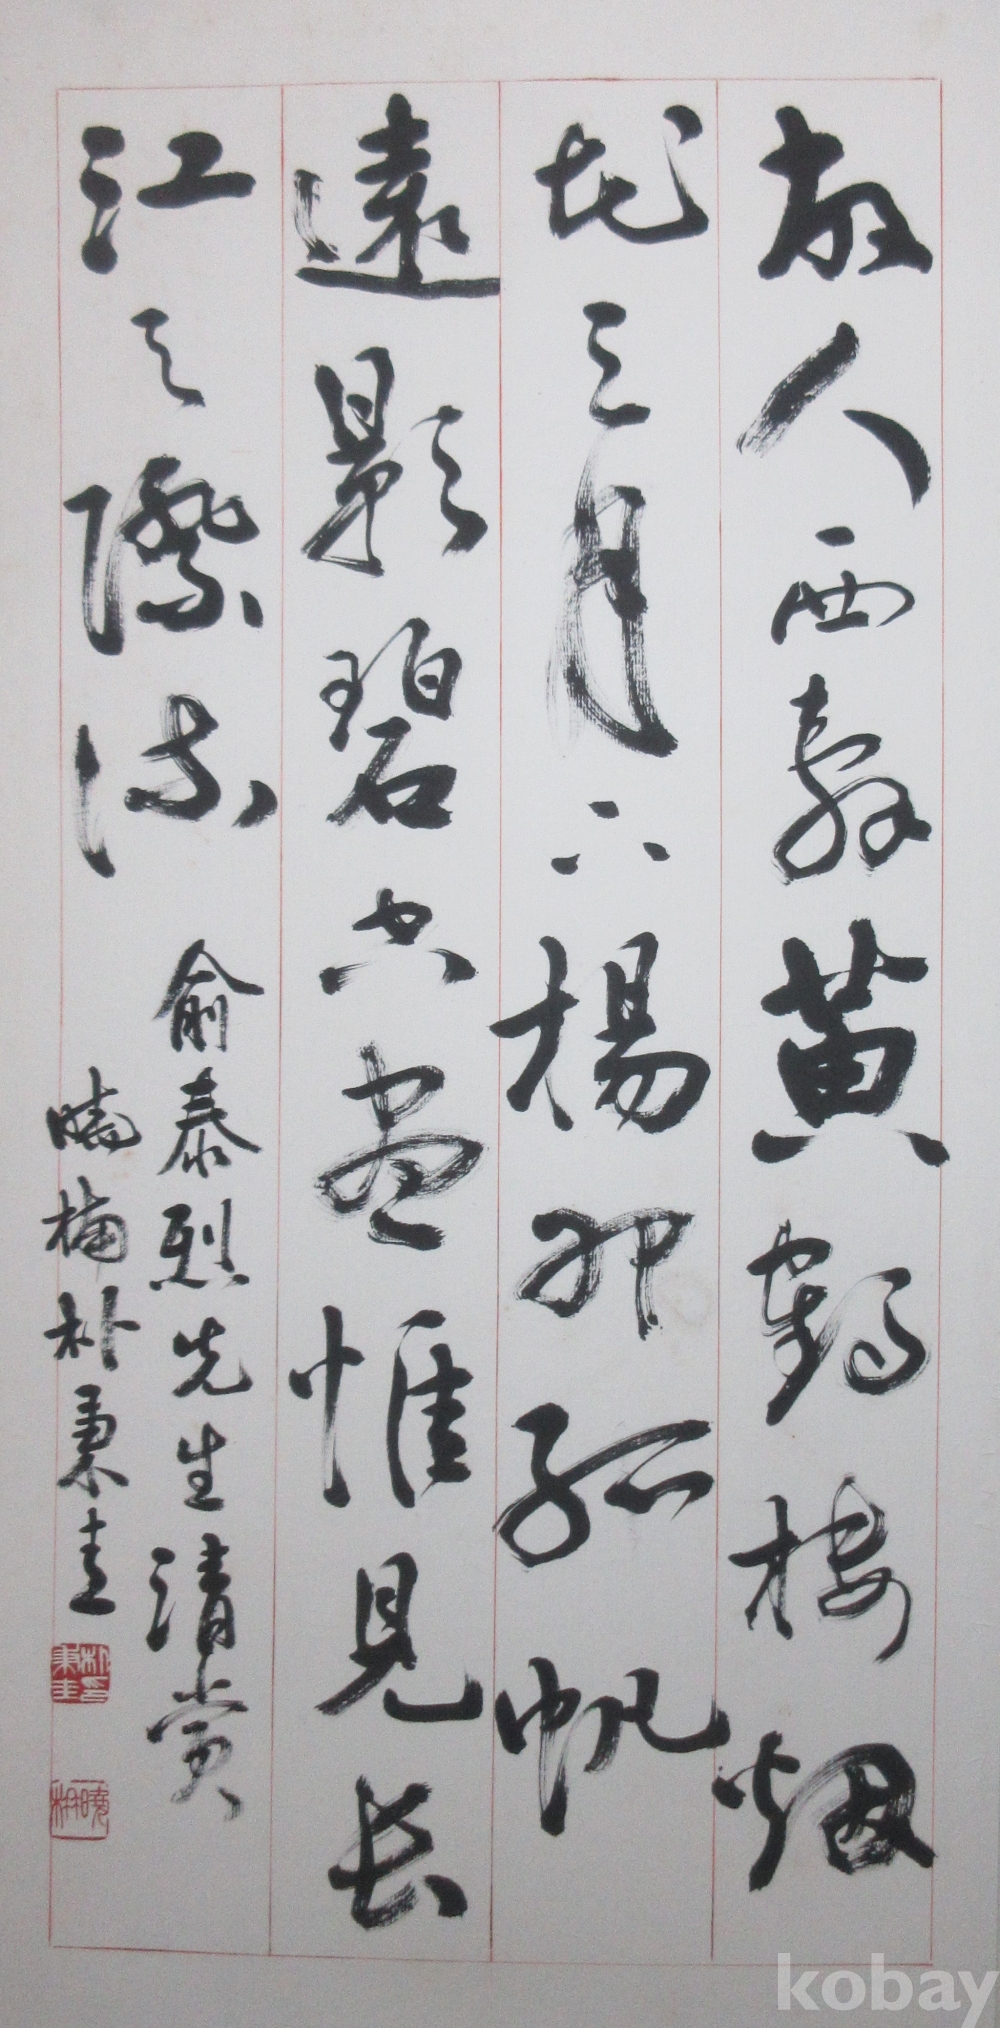 故人西辭黄鶴樓烟
花三月下揚州孤帆
遠影碧空盡惟見长
江天際流
俞泰烈先生清賞
曉楠朴秉圭
朴秉圭印
kobay